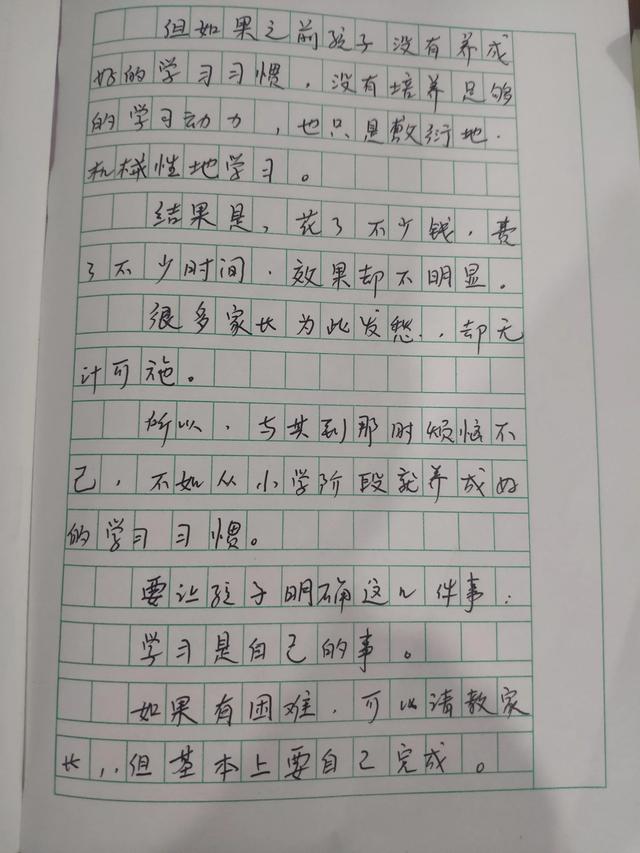 但如果之前孩子没有养成
好的学习习惯，没有培养足够
的学习动力，也只是敷衍地.
机械性地学习。
结果是，花了不少钱，费
了不少时间，效果却不明显。
很多家长为此发愁，却无
计可施。
所以，与其到那时烦恼不
已，不如从小学阶段就养成好
的学习习惯。
要让孩子明确这几件事：
学习是自己的事。
如果有困难，可以请教家
长，但基本上要自己完成。